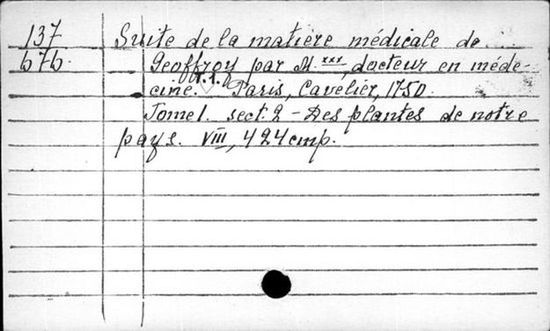 137 Suite de la matière médicale de
676. Geoffroy par M.xxx, docteur en méde-
cine. Paris, Cavelier, 1750
Tome 1. sect. 2 - Des plantes de notre
pays. VIII, 424 cmp.